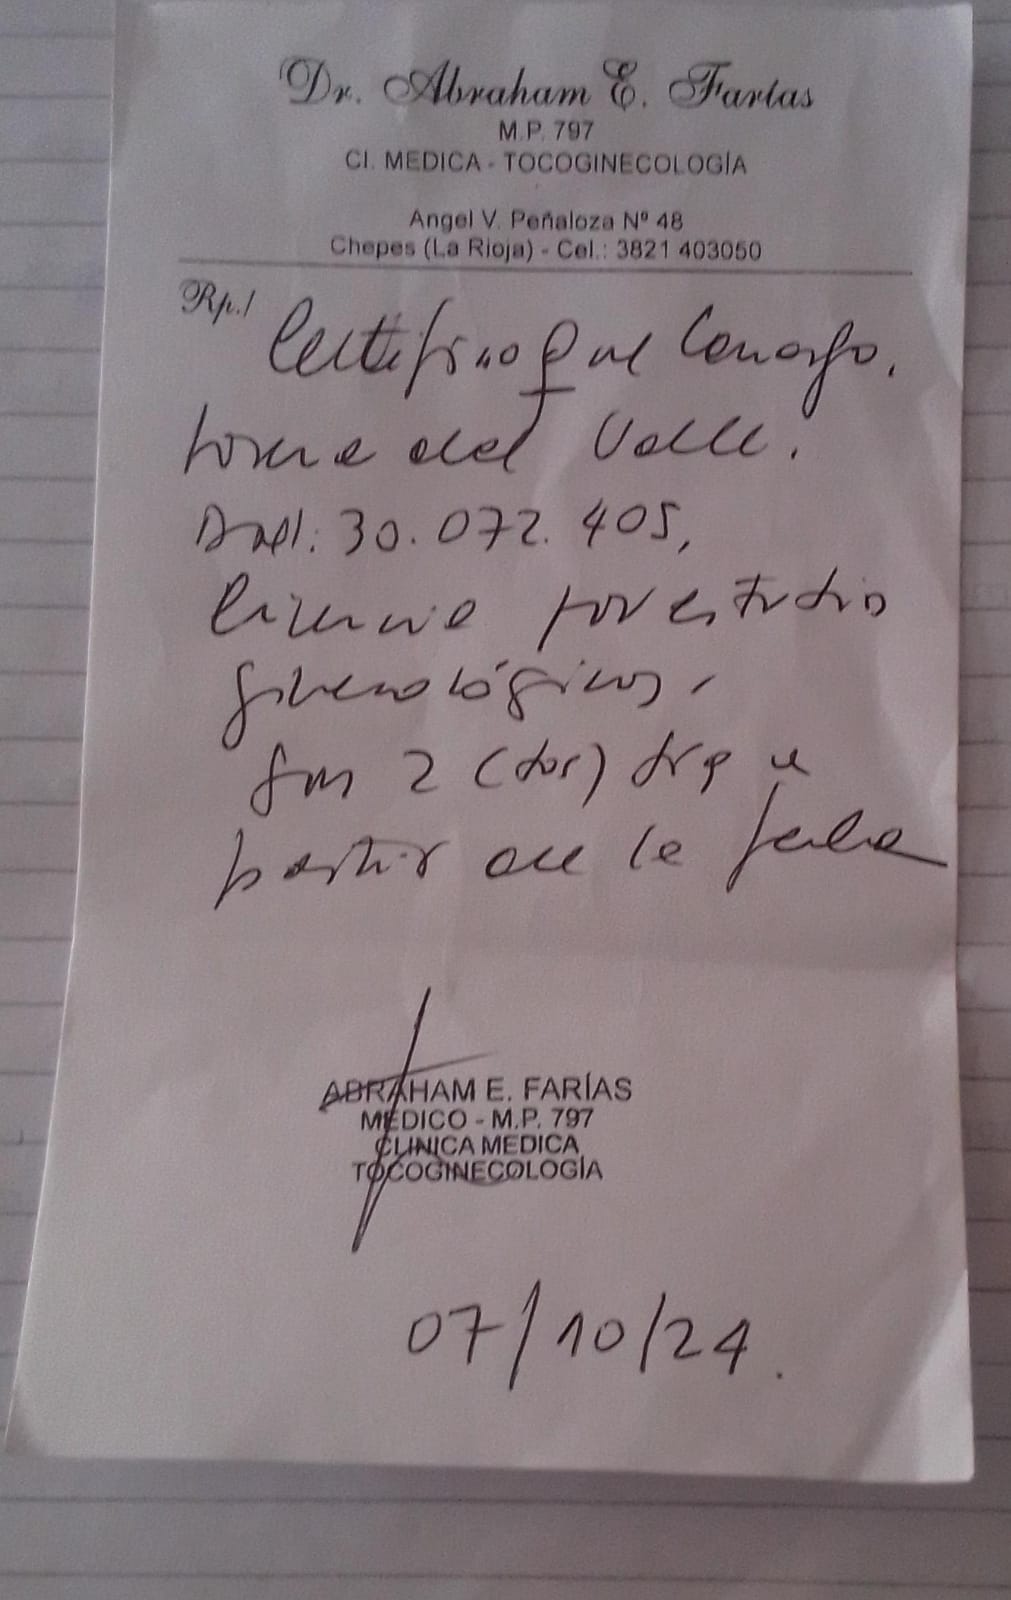 Dr. Abraham E. Farías
M.P. 797
CI. MEDICA - TOCOGINECOLOGÍA
Angel V. Peñaloza Nº 48
Chepes (La Rioja) - Cel.: 3821 403050
Rp./
Certifico que
del Valle.
30.072.405,
licencia por estudio
ginecológicos,
por 2 (dos) días a
partir de la fecha
ABRAHAM E. FARÍAS
MÉDICO - M.P. 797
CLINICA MEDICA
TOCOGINECOLOGÍA
07/10/24.